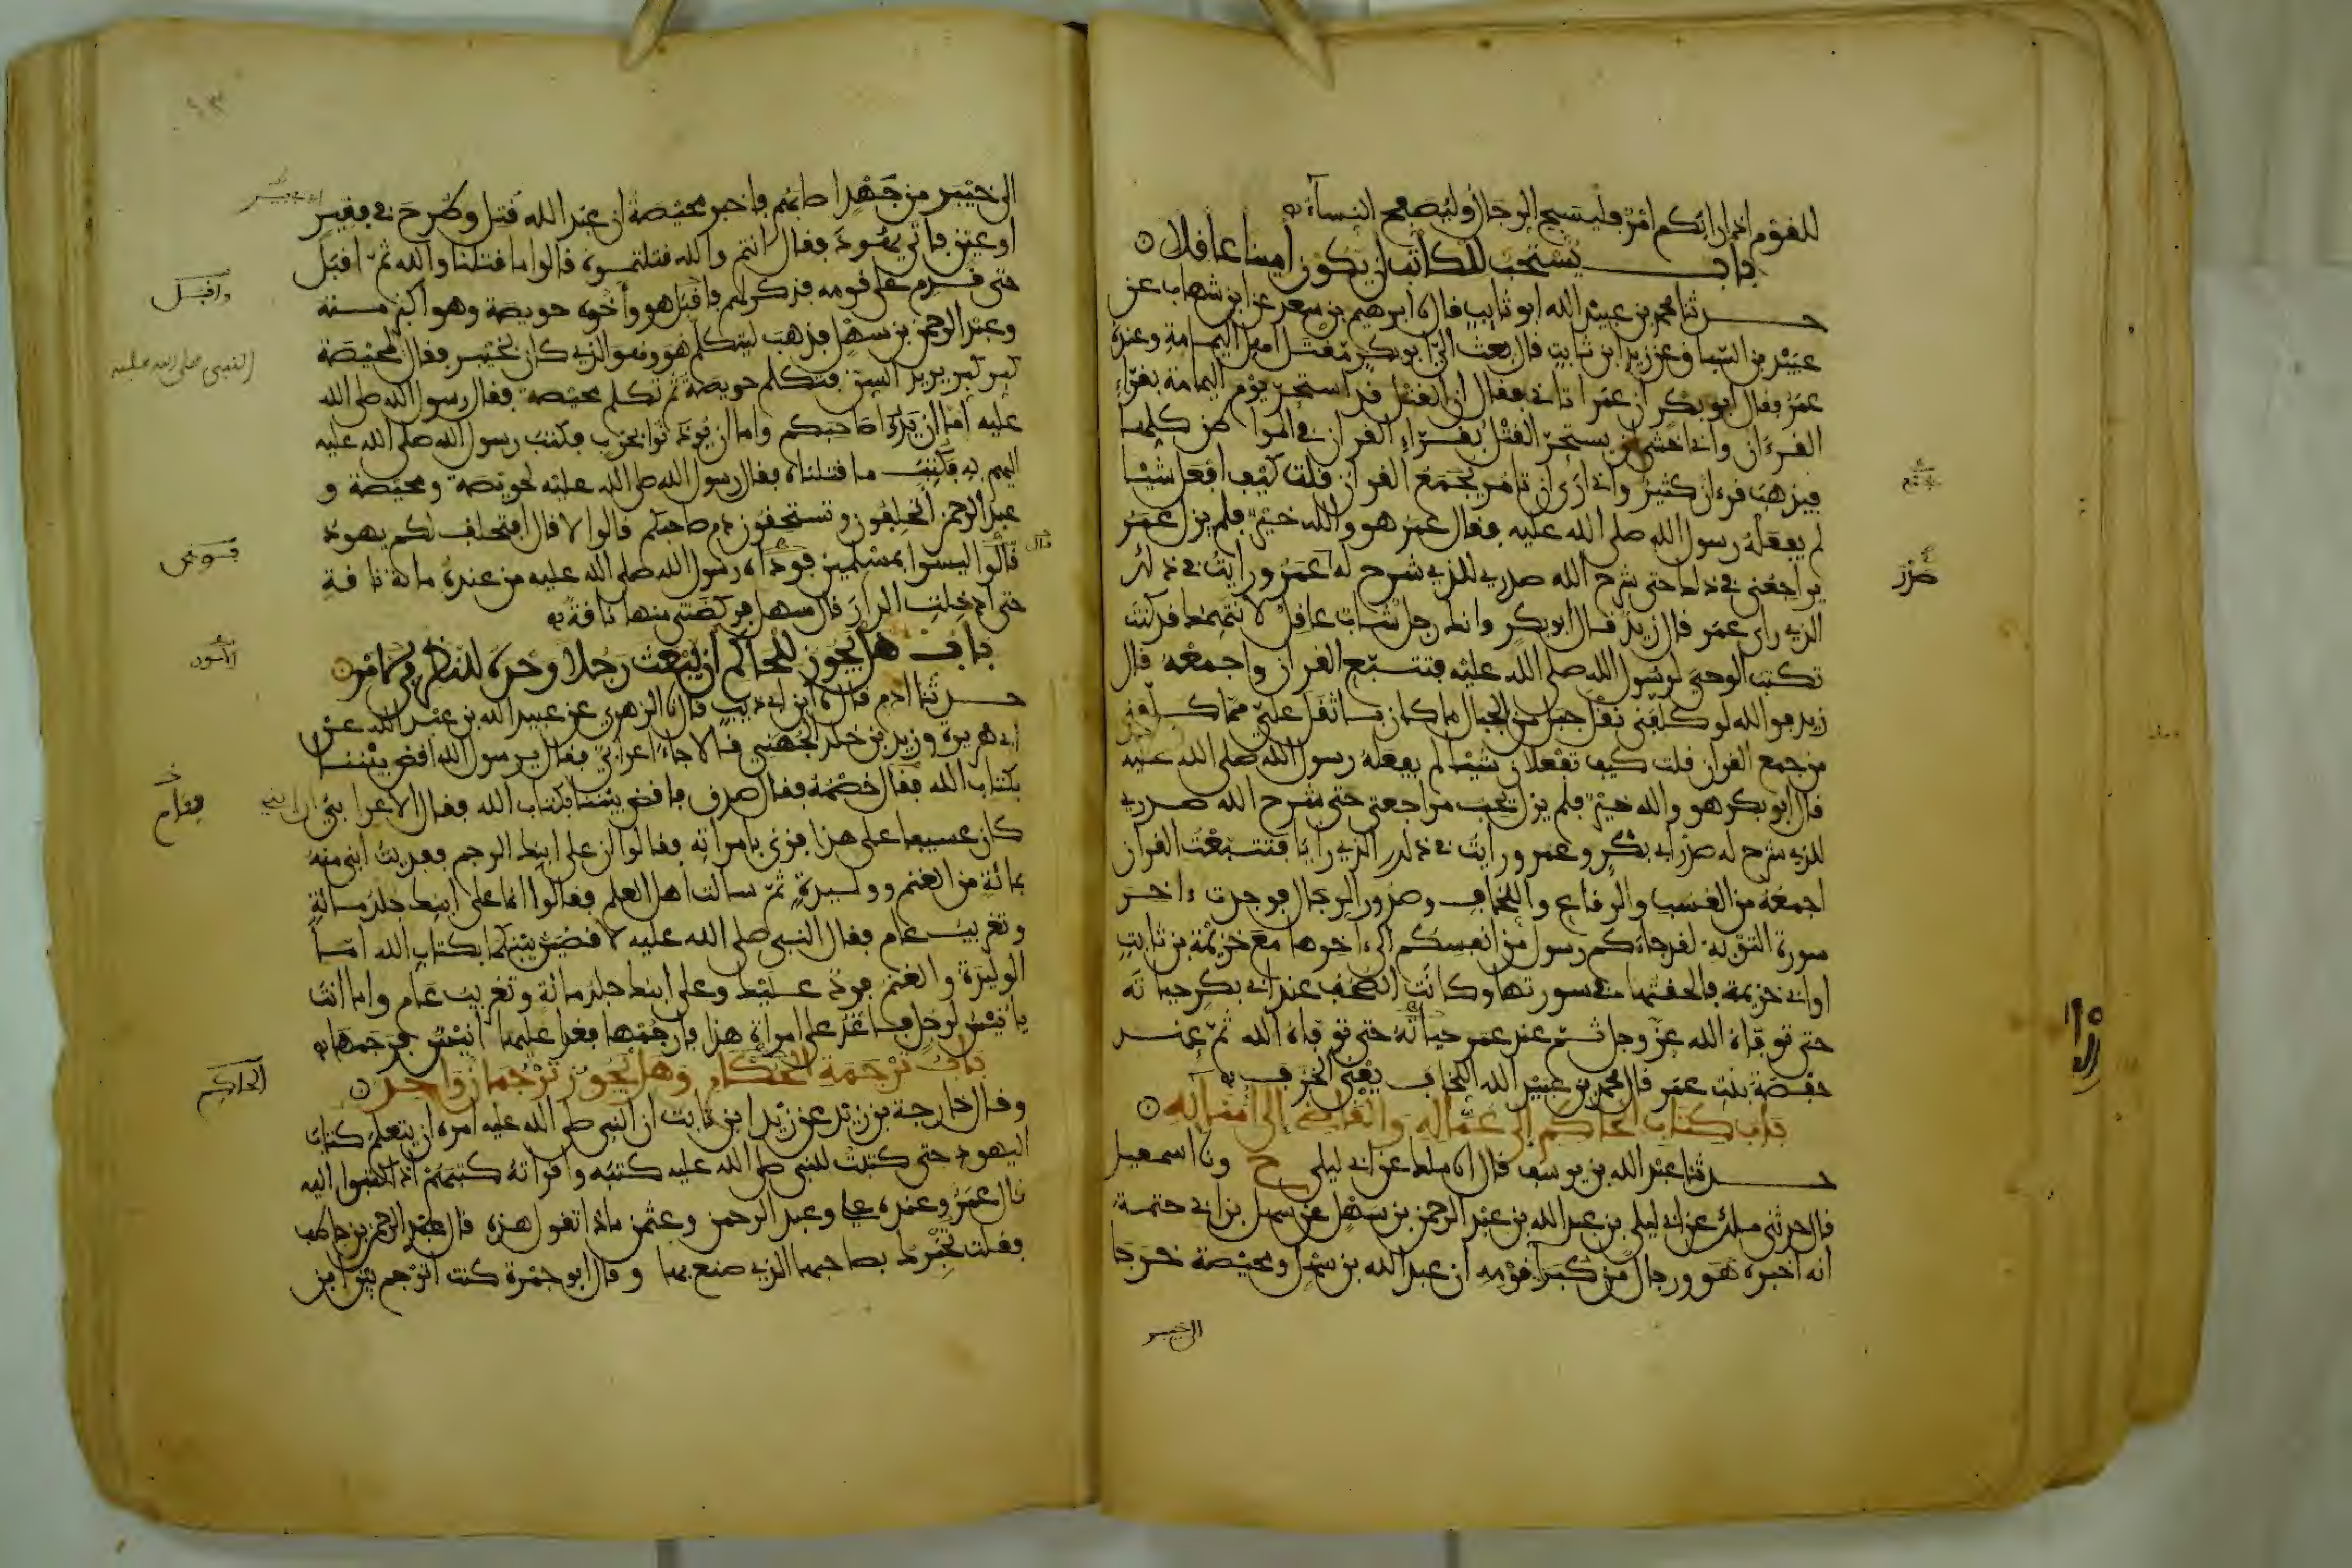 للقوم اذا رابكم امر فليسبح الرجال وليصفح النساء
باب يستحب للكاتب ان يكون امينا عاقلا
حدثنا محمد بن عبيد الله ابو ثابت قال نا ابرهيم بن سعد عن ابن شهاب عن
عبيد بن السباق عن زيد ابن ثابت قال بعث الي ابو بكر مقتل اهل اليمامة وعنده
عمر وقال ابو بكر ان عمر اتاني فقال ان القتل قد استحر يوم اليمامة بقراء
القرءان واني اخشى ان يستحر القتل بقراء القران في المواطن كلها
فيذهب قرءان كثير واني ارى ان تامر بجمع القران قلت كيف افعل شيئا
لم يفعله رسول الله صلى الله عليه فقال عمر هو والله خير فلم يزل عمر
يراجعني في ذلك حتى شرح الله صدري للذي شرح له عمر ورايت في ذلك
الذي راى عمر قال زيد قال ابو بكر وانك رجل شاب عاقل لا نتهمك قد كنت
تكتب الوحي لرسول الله صلى الله عليه فتتبع القران واجمعه قال
زيد فوالله لو كلفني نقل جبل من الجبال ما كان باثقل علي مما كلفني
من جمع القران قلت كيف تفعلان شيئا لم يفعله رسول الله صلى الله عليه
قال ابو بكر هو والله خير فلم يزل يحب مراجعتي حتى شرح الله صدري
للذي شرح له صدر ابي بكر وعمر ورايت في ذلك الذي رايا فتتبعت القران
اجمعه من العسب والرقاع واللخاف وصدور الرجال فوجدت ءاخر
سورة التوبة لقد جاءكم رسول من انفسكم الى ءاخرها مع خزيمة بن ثابت
او ابي خزيمة فالحقتها في سورتها وكانت الصحف عند ابي بكر حياته
حتى توفاه الله عز وجل ثم عند عمر حياته حتى توفاه الله ثم عند
حفصة بنت عمر قال محمد بن عبيد الله اللخاف يعني الخزف
باب كتاب الحاكم الى عماله والقاضي الى امنائه
حدثنا عبد الله بن يوسف قال انا ملك عن ابي ليلى ح ونا اسمعيل
قال حدثني ملك عن ابي ليلى بن عبد الله بن عبد الرحمن بن سهل عن سهل بن ابي حثمة
انه اخبره هو ورجال من كبراء قومه ان عبد الله بن سهل ومحيصة خرجا
صدر
الى خيبر من جهد اصابهم فاخبر محيصة ان عبد الله قتل وطرح في فقير
او عين فاتى يهود فقال انتم والله قتلتموه قالوا ما قتلنا والله ثم اقبل
حتى قدم على قومه فذكر لهم فاقبل هو واخوه حويصة وهو اكبر منه
وعبد الرحمن بن سهل فذهب ليتكلم هو وهو الذي كان بخيبر فقال لمحيصة
كبر كبر يريد السن فتكلم حويصة ثم تكلم محيصة فقال رسول الله صلى الله
عليه اما ان يدوا صاحبكم واما ان يوذنوا بحرب فكتب رسول الله صلى الله عليه
اليهم به فكتب ما قتلناه فقال رسول الله صلى الله عليه لحويصة ومحيصة و
عبد الرحمن اتحلفون وتستحقون دم صاحبكم قالوا لا قال افتحلف لكم يهود
قالوا ليسوا بمسلمين فوداه رسول الله صلى الله عليه من عنده مائة ناقة
حتى ادخلت الدار قال سهل فركضتني منها ناقة
باب هل يجوز للحاكم ان يبعث رجلا وحده للنظر في امر
حدثنا ادم قال نا ابن ابي ذيب قال نا الزهري عن عبيد الله بن عبد الله عن
ابي هريرة وزيد بن خلد الجهني قالا جاء اعرابي فقال يرسول الله اقض بيننا
بكتاب الله فقال خصمه فقال صدق فاقض بيننا بكتاب الله فقال الاعرابي ان ابني
كان عسيفا على هذا فزنى بامراته فقالوا ان على ابنك الرجم ففديت ابني منه
بمائة من الغنم ووليدة ثم سالت اهل العلم فقالوا انما على ابنك جلد مائة
وتغريب عام فقال النبي صلى الله عليه لاقضين بينكما بكتاب الله اما
الوليدة والغنم فرد عليك وعلى ابنك جلد مائة وتغريب عام واما انت
يا انيس لرجل فاغد على امراة هذا فارجمها فغدا عليها انيس فرجمها
باب ترجمة الحكام وهل يجوز ترجمان واحد
وقال خارجة بن زيد عن زيد ابن ثابت ان النبي صلى الله عليه امره ان يتعلم كتاب
اليهود حتى كتبت للنبي صلى الله عليه كتبه واقراته كتبهم اذا كتبوا اليه
قال عمر وعنده علي وعبد الرحمن وعثمن ماذا تقول هذه قال عبد الرحمن بن حاطب
فقلت تخبرك بصاحبها الذي صنع بها وقال ابو جمرة كنت اترجم بين ابن
واقبل
النبي صلى الله عليه
الحاكم